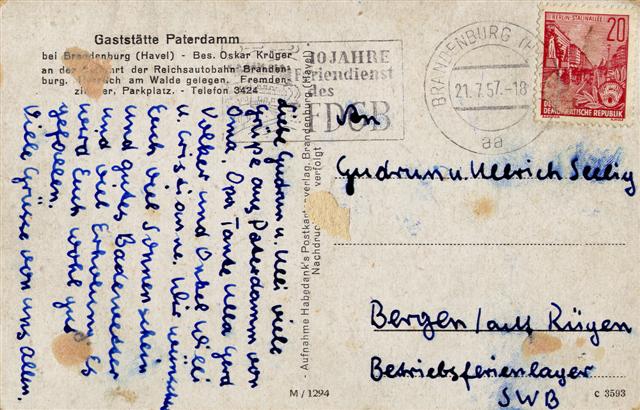 Gaststätte Paterdamm
bei Brandenburg (Havel) - Bes. Oskar Krüger
an der Abfahrt der Reichsautobahn Branden-
burg. Herrlich am Walde gelegen. Fremden-
zimmer, Parkplatz. - Telefon 3424
Liebe Gudrun u. Ulli viele
Grüße aus Paterdamm von
Oma, Opa, Tante Ulla Gerd
Volker und Onkel Willi
u. Cristianne. Wir wünschen
Euch viel Sonnenschein
und gutes Badewetter
und viel Erholung. Es
wird Euch wohl gut
gefallen.
Viele Grüsse von uns Allen.
- Aufnahme Habedank's Postkartenverlag, Brandenburg (Havel)
Nachdruck verfolgt
10 JAHRE
Feriendienst
des
FDGB
BRANDENBURG (H
21.7.57.-18
aa
BERLIN-STALINALLEE
20
DEUTSCHE
DEMOKRATISCHE REPUBLIK
An
Gudrun u. Ullrich Seelig
Bergen/auf Rügen
Betriebsferienlager
SWB
M/1294
C 3593